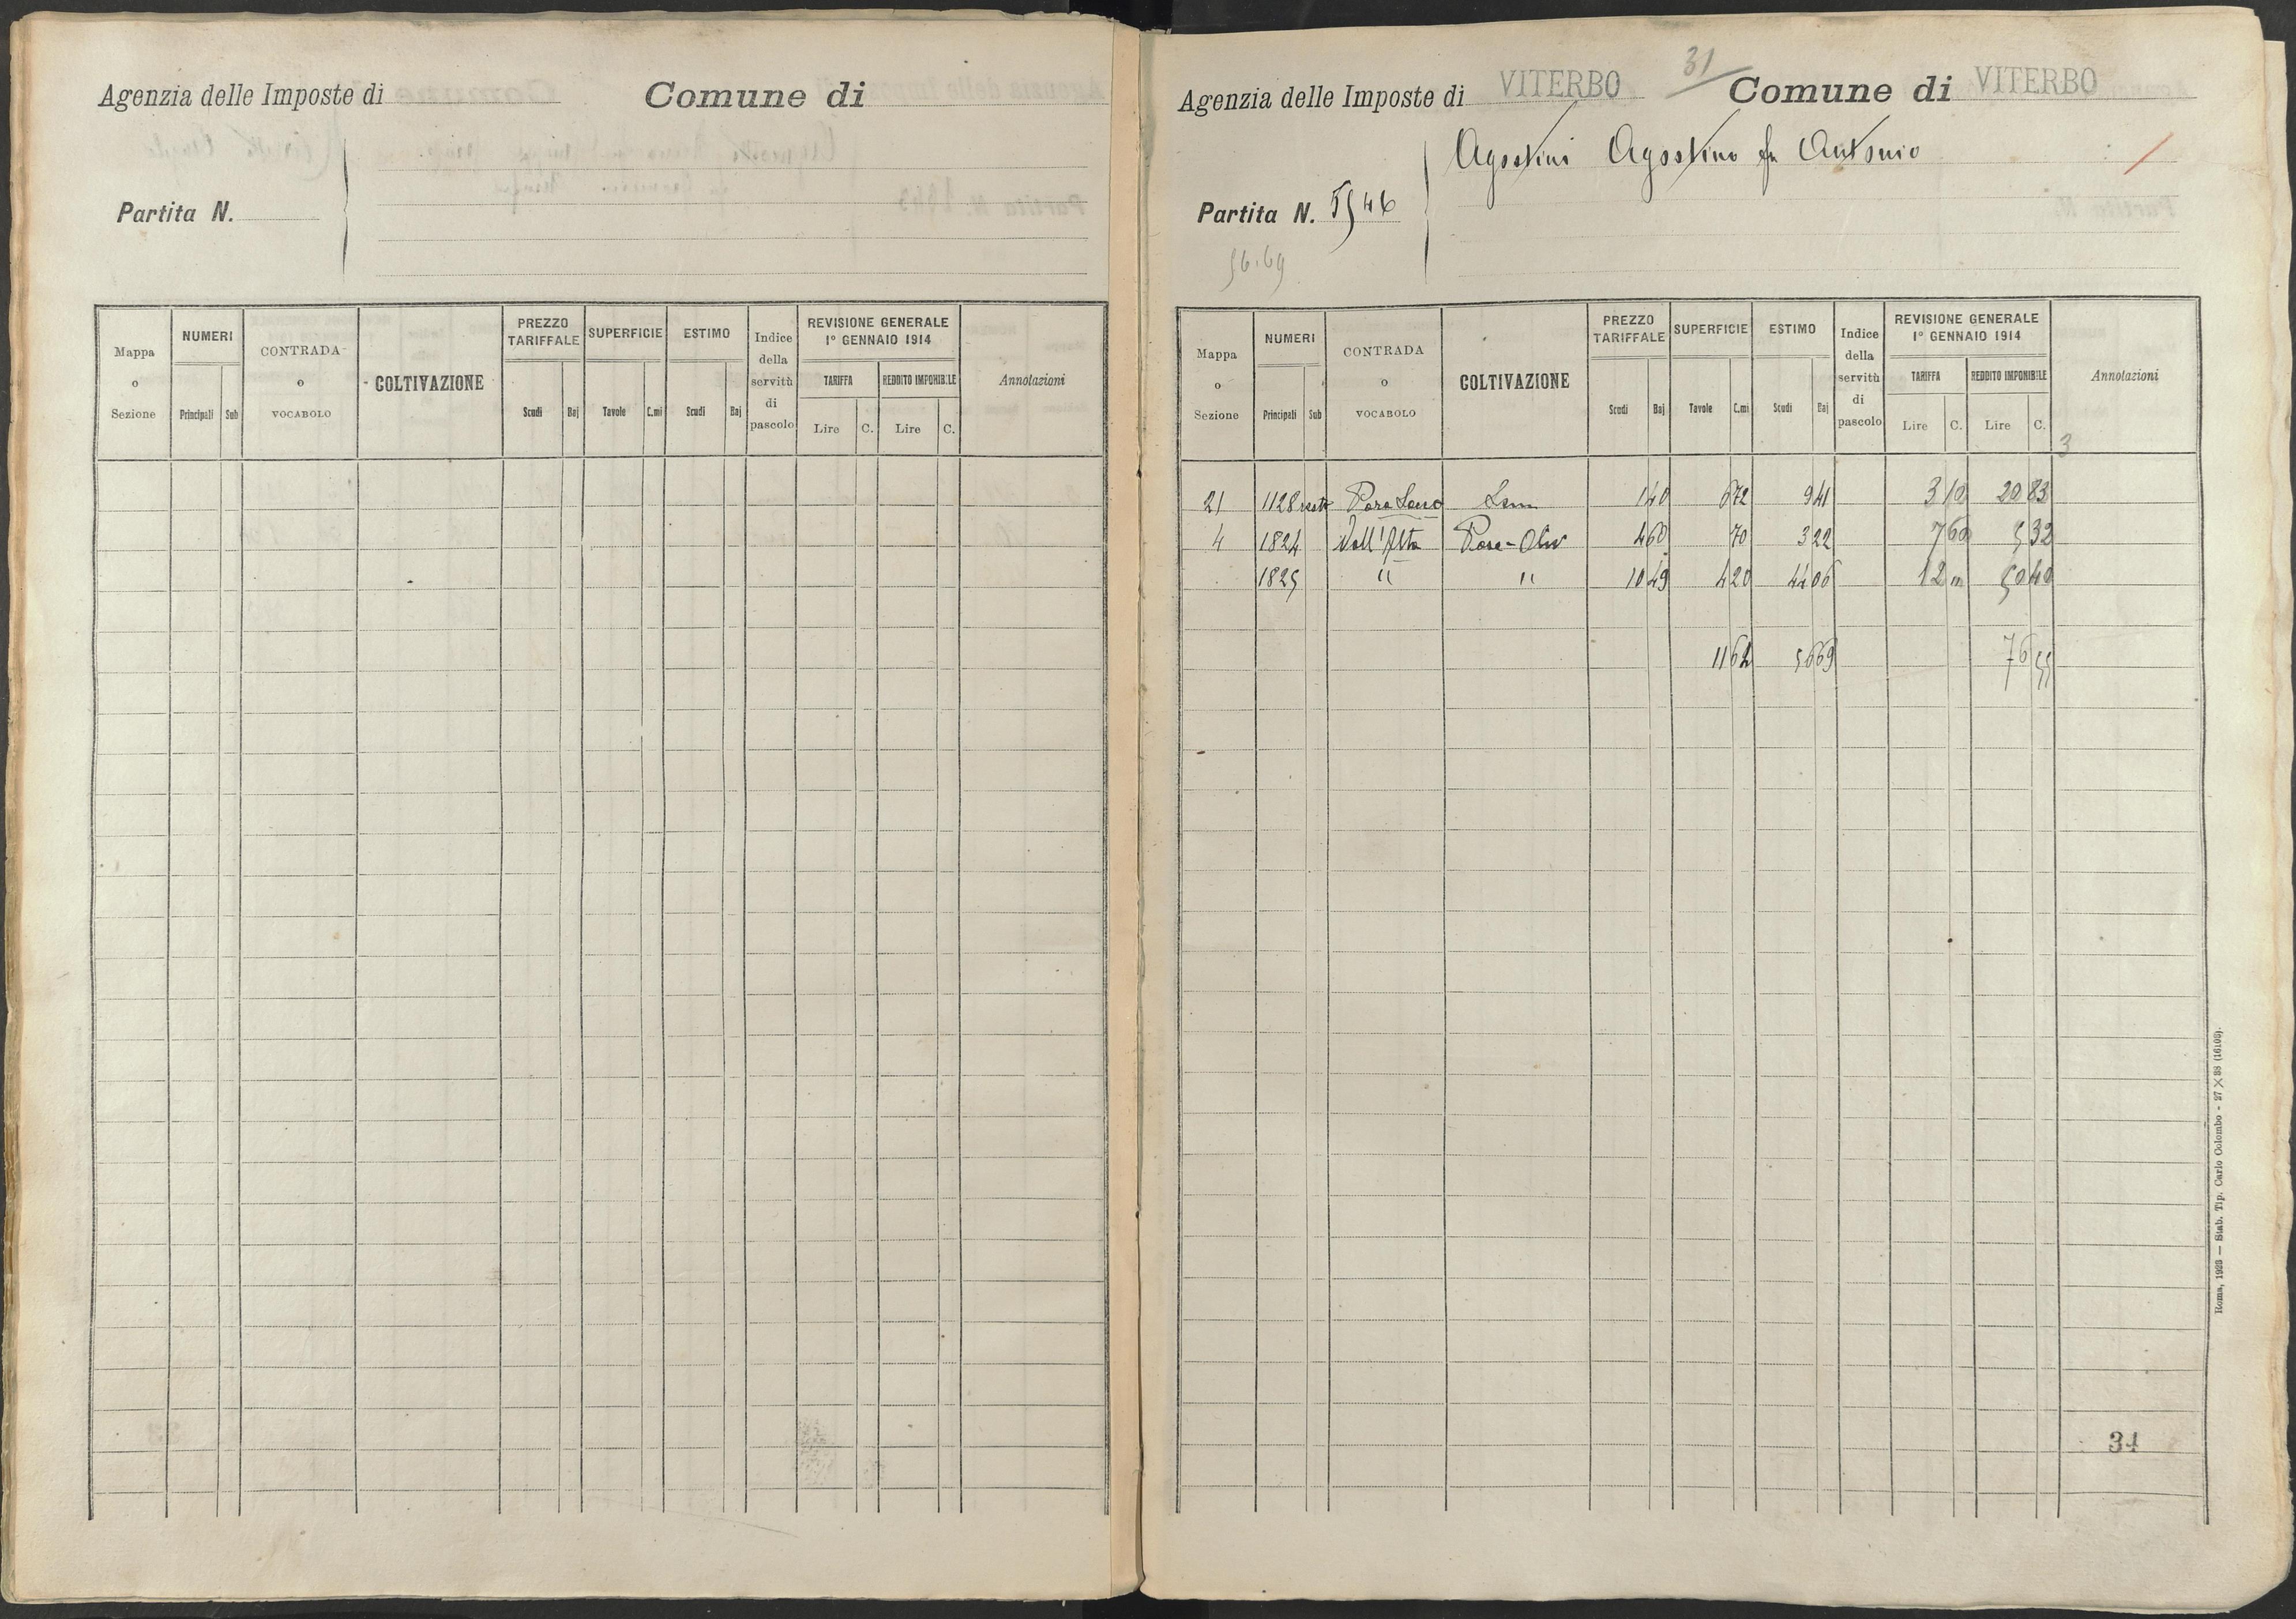 Agenzia delle Imposte di
Comune di
Partita N.
Mappa o Sezione
NUMERI
Principali Sub
CONTRADA o VOCABOLO
COLTIVAZIONE
PREZZO TARIFFALE
Scudi Baj
SUPERFICIE
Tavole C.mi
ESTIMO
Scudi Baj
Indice della servitù di pascolo
REVISIONE GENERALE 1º GENNAIO 1914
TARIFFA
Lire C.
REDDITO IMPONIBILE
Lire C.
Annotazioni
31
Agenzia delle Imposte di VITERBO Comune di VITERBO
Agostini Agostino fu Antonio
Partita N. 5546
56.69
Mappa o Sezione
NUMERI
Principali Sub
CONTRADA o VOCABOLO
COLTIVAZIONE
PREZZO TARIFFALE
Scudi Baj
SUPERFICIE
Tavole C.mi
ESTIMO
Scudi Baj
Indice della servitù di pascolo
REVISIONE GENERALE 1º GENNAIO 1914
TARIFFA
Lire C.
REDDITO IMPONIBILE
Lire C.
Annotazioni
3
21 1128 Sem 1 40 6 72 9 41 3 10 20 83
4 1824 Vall'Alta Pasc-Oliv 4 60 70 3 22 7 60 5 32
1825 " " 10 49 4 20 44 06 12 50 40
11 62 56 69 76 55
34
Roma, 1923 — Stab. Tip. Carlo Colombo - 27 × 38 (16108).